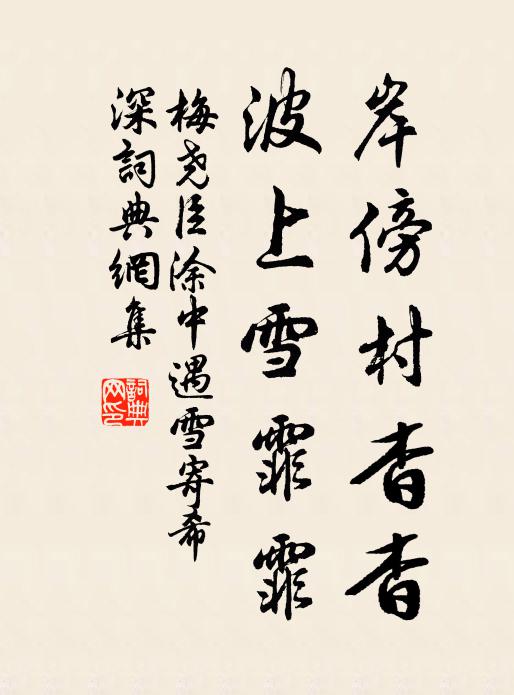 岸傍村杳杳
波上雪霏霏
梅尧臣涂中遇雪寄希
深詞典網集
詞典
网印